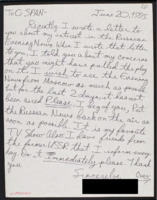 To C-SPAN- June 20, 1995
Recently I wrote a letter to
you about my interest in the Russian
Evening News. When I wrote that letter
to you, I told you about my concerns
that you might have pulled the plug
on it. I wish to see the Evening
News from Moscow as much as possible
but for the last 2 it hasn't
been aired. Please, I beg of you, Put
the Russian News back on the air as
soon as possible. It is my favorite
TV Show. Also I have friends from
the former USSR that I inform every
day. Do it Immediately please. Thank
you.
Sincerely,